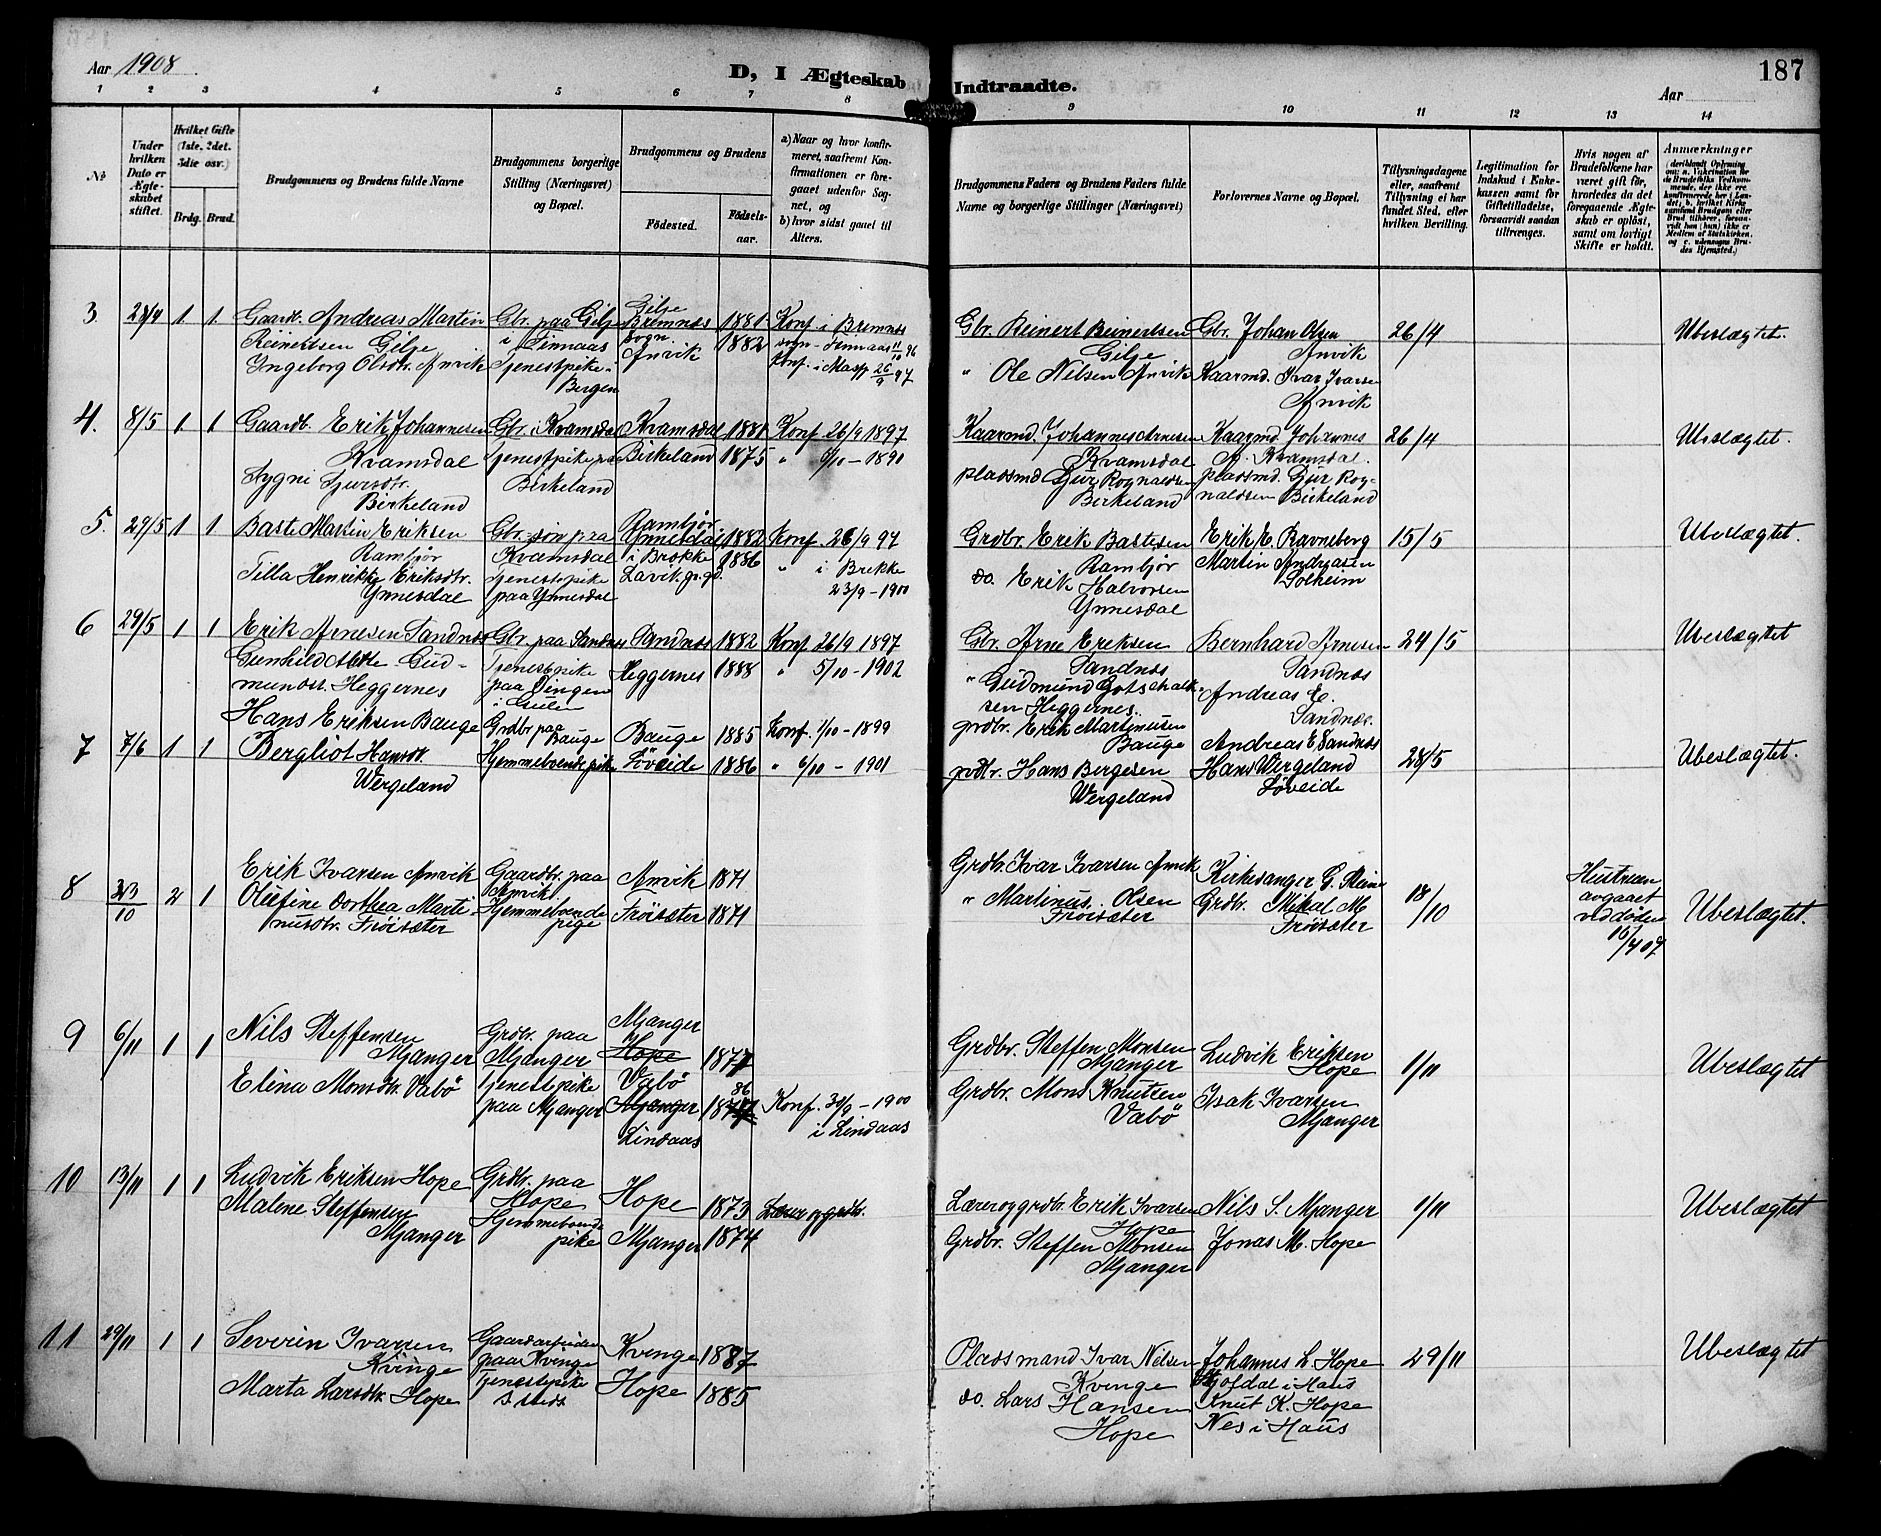 Aar 1908
D, I Ægteskab Indtraadte.
187
Aar
1 2 3 4 5 6 7 8 9 10 11 12 13 14
No
Under hvilken Dato er Ægteskabet stiftet.
Hvilket Gifte (1ste, 2det, 3die osv.)
Brdg. Brud.
Brudgommens og Brudens fulde Navne
Brudgommens borgerlige Stilling (Næringsvei) og Bopæl.
Brudgommens og Brudens
Fødested. Fødselsaar.
a) Naar og hvor konfirmeret, saafremt Konfirmationen er foregaaet udenfor Sognet, og
b) hvor sidst gaaet til Alters.
Brudgommens Faders og Brudens Faders fulde Navne og borgerlige Stillinger (Næringsvei)
Forlovernes Navne og Bopæl.
Tillysningsdagene eller, saafremt Tillysning ei har fundet Sted, efter hvilken Bevilling.
Legitimation for Indskud i Enkekassen samt for Giftetilladelse, forsaavidt saadan tiltrænges.
Hvis nogen af Brudefolkene har været gift før, hvorledes da det foregaaende Ægteskab er opløst, samt om lovligt Skifte er holdt.
Anmærkninger
3. 28/4 1. 1. Gaardb. Andreas Martin
Reinertsen Gilje
Ingeborg Olsdtr. Anvik
Gbr. paa Gilje
i Finnaas
Tjenestpike
Bergen
Gilje
Bremnes
sogn.
Anvik
1881
1882
Konf. i Bremnes
sogn - Finnaas 11/10 96
Konf. i Masfj. 26/9 97
Gbr. Reinert Reinertsen
Gilje
" Ole Nilsen Anvik
Gbr. Johan Olsen
Anvik
Kaarmd. Ivar Ivarsen
Anvik
26/4
Ubeslægtet.
4. 8/5 1. 1 Gaardb. Erik Johannesen
Kvamsdal
Sygni Gjursdtr.
Birkeland
Gbr. i Kvamsdal
Tjenestpike paa
Birkeland
Kvamsdal
Birkeland
1881
1875
Konf. 26/9 1897
" 6/10 - 1890
Kaarmd. Johannes Arnesen
Kvamsdal
pladsmd. Gjur Rognaldsen
Birkeland
Kaarmd. Johannes
A. Kvamsdal.
pladsmd. Gjur Rognaldsen
Birkeland
26/4
Ubeslægtet.
5. 29/5 1 1 Baste Martin Eriksen
Rambjør
Tilla Henrikke Eriksdtr.
Ynnesdal
Gbr. søn paa
Kvamsdal
Tjenestpike
paa Ynnesdal
Rambjør
Ynnesdal
i Brekke
Lavik pr.gd.
1882
1886
Konf. 26/9 97
" i Brekke
23/9 - 1900
Grdbr. Erik Bastesen
Rambjør
do. Erik Halvorsen
Ynnesdal
Erik E. Ravneberg
Martin Andreasen
Solheim
15/5
Ubeslægtet.
6 29/5 1 1 Erik Arnesen Sandnes
Gunhild Mette Gudmundsdtr. Heggernes
Gbr. paa Sandnes
Tjenestpike
paa Dingen
i Gulen
Sandnes
Heggernes
1882
1888
Konf. 26/9 1897
" 5/10 - 1902
Gbr. Arne Eriksen
Sandnes
" Gudmund Gotschalksen
Heggernes.
Bernhard Arnesen
Sandnes
Andreas E.
Sandnes.
24/5
Ubeslægtet
7 7/6 1 1 Hans Eriksen Bauge
Bergliot Hansdtr.
Wergeland
Grdbr. paa
Bauge
Hjemmeboende pike
Bauge
Løveide
1885
1886
Konf. 1/10 - 1899
" 6/10 - 1901
grdbr. Erik Martinusen
Bauge
grdbr. Hans Bergesen
Wergeland
Andreas E Sandnes
Hans Wergeland
Løveide
28/5
Ubeslægtet.
8 23/10 2 1 Erik Ivarsen Anvik
Olufine Dorthea Martinusdtr. Frøisæter
Gaardbr. paa
Anvik
Hjemmeboende
pige
Anvik
Frøisæter
1871
1871
Grdbr Ivar Ivarsen Anvik
" Martinus Olsen
Frøisæter
Kirkesanger G. Steine
Grdbr. Mikal M
Frøisæter
18/10
Hustruen
avgaaet
ved døden
16/4 07
Ubeslægtet.
9 6/11 1 1 Nils Steffensen
Mjanger
Elina Monsdtr. Vabø
Grdbr. paa
Mjanger
Tjenestepike
paa Mjanger
Mjanger
Hope
Vabø
Mjanger
Lindaas
1877
86
1877
Konf. 30/9 - 1900
i Lindaas
Grdbr. Steffen Monsen
Mjanger
Grdbr. Mons Knutsen
Vabø
Ludvik Eriksen
Hope
Isak Ivarsen
Mjanger
1/11
Ubeslægtet
10 13/11 1 1 Ludvik Eriksen Hope
Malene Steffensen
Mjanger
Grdbr. paa
Hope
Hjemmeboende
pike
Hope
Mjanger
1873
1874
Lærer og grdbr.
Lærer og grdbr. Erik Ivarsen
Hope
Grdbr. Steffen Monsen
Mjanger
Nils S. Mjanger
Jonas M. Hope
1/11
Ubeslægtet
11 29/11 1 1 Severin Ivarsen
Kvinge
Marta Larsdtr. Hope
Gaardsarbeider
paa Kvinge
Tjenestepike
s. steds
Kvinge
Hope
1887
1885
Pladsmand Ivar Nilsen
Kvinge
do. Lars Hansen
Hope
Johannes L. Hope
i Haus
Knut K. Hope
Nes i Haus
29/11
Ubeslægtet